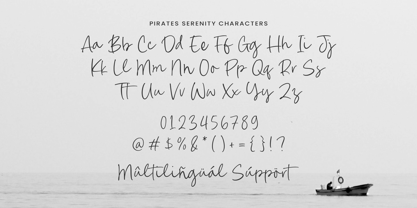 PIRATES SERENITY CHARACTERS
Aa Bb Cc Dd Ee Ff Gg Hh Ii Jj
Kk Ll Mm Nn Oo Pp Qq Rr Ss
Tt Uu Vv Ww Xx Yy Zz
0123456789
@#$%&*()+={}!?
Múltilíñgúál Súppórt